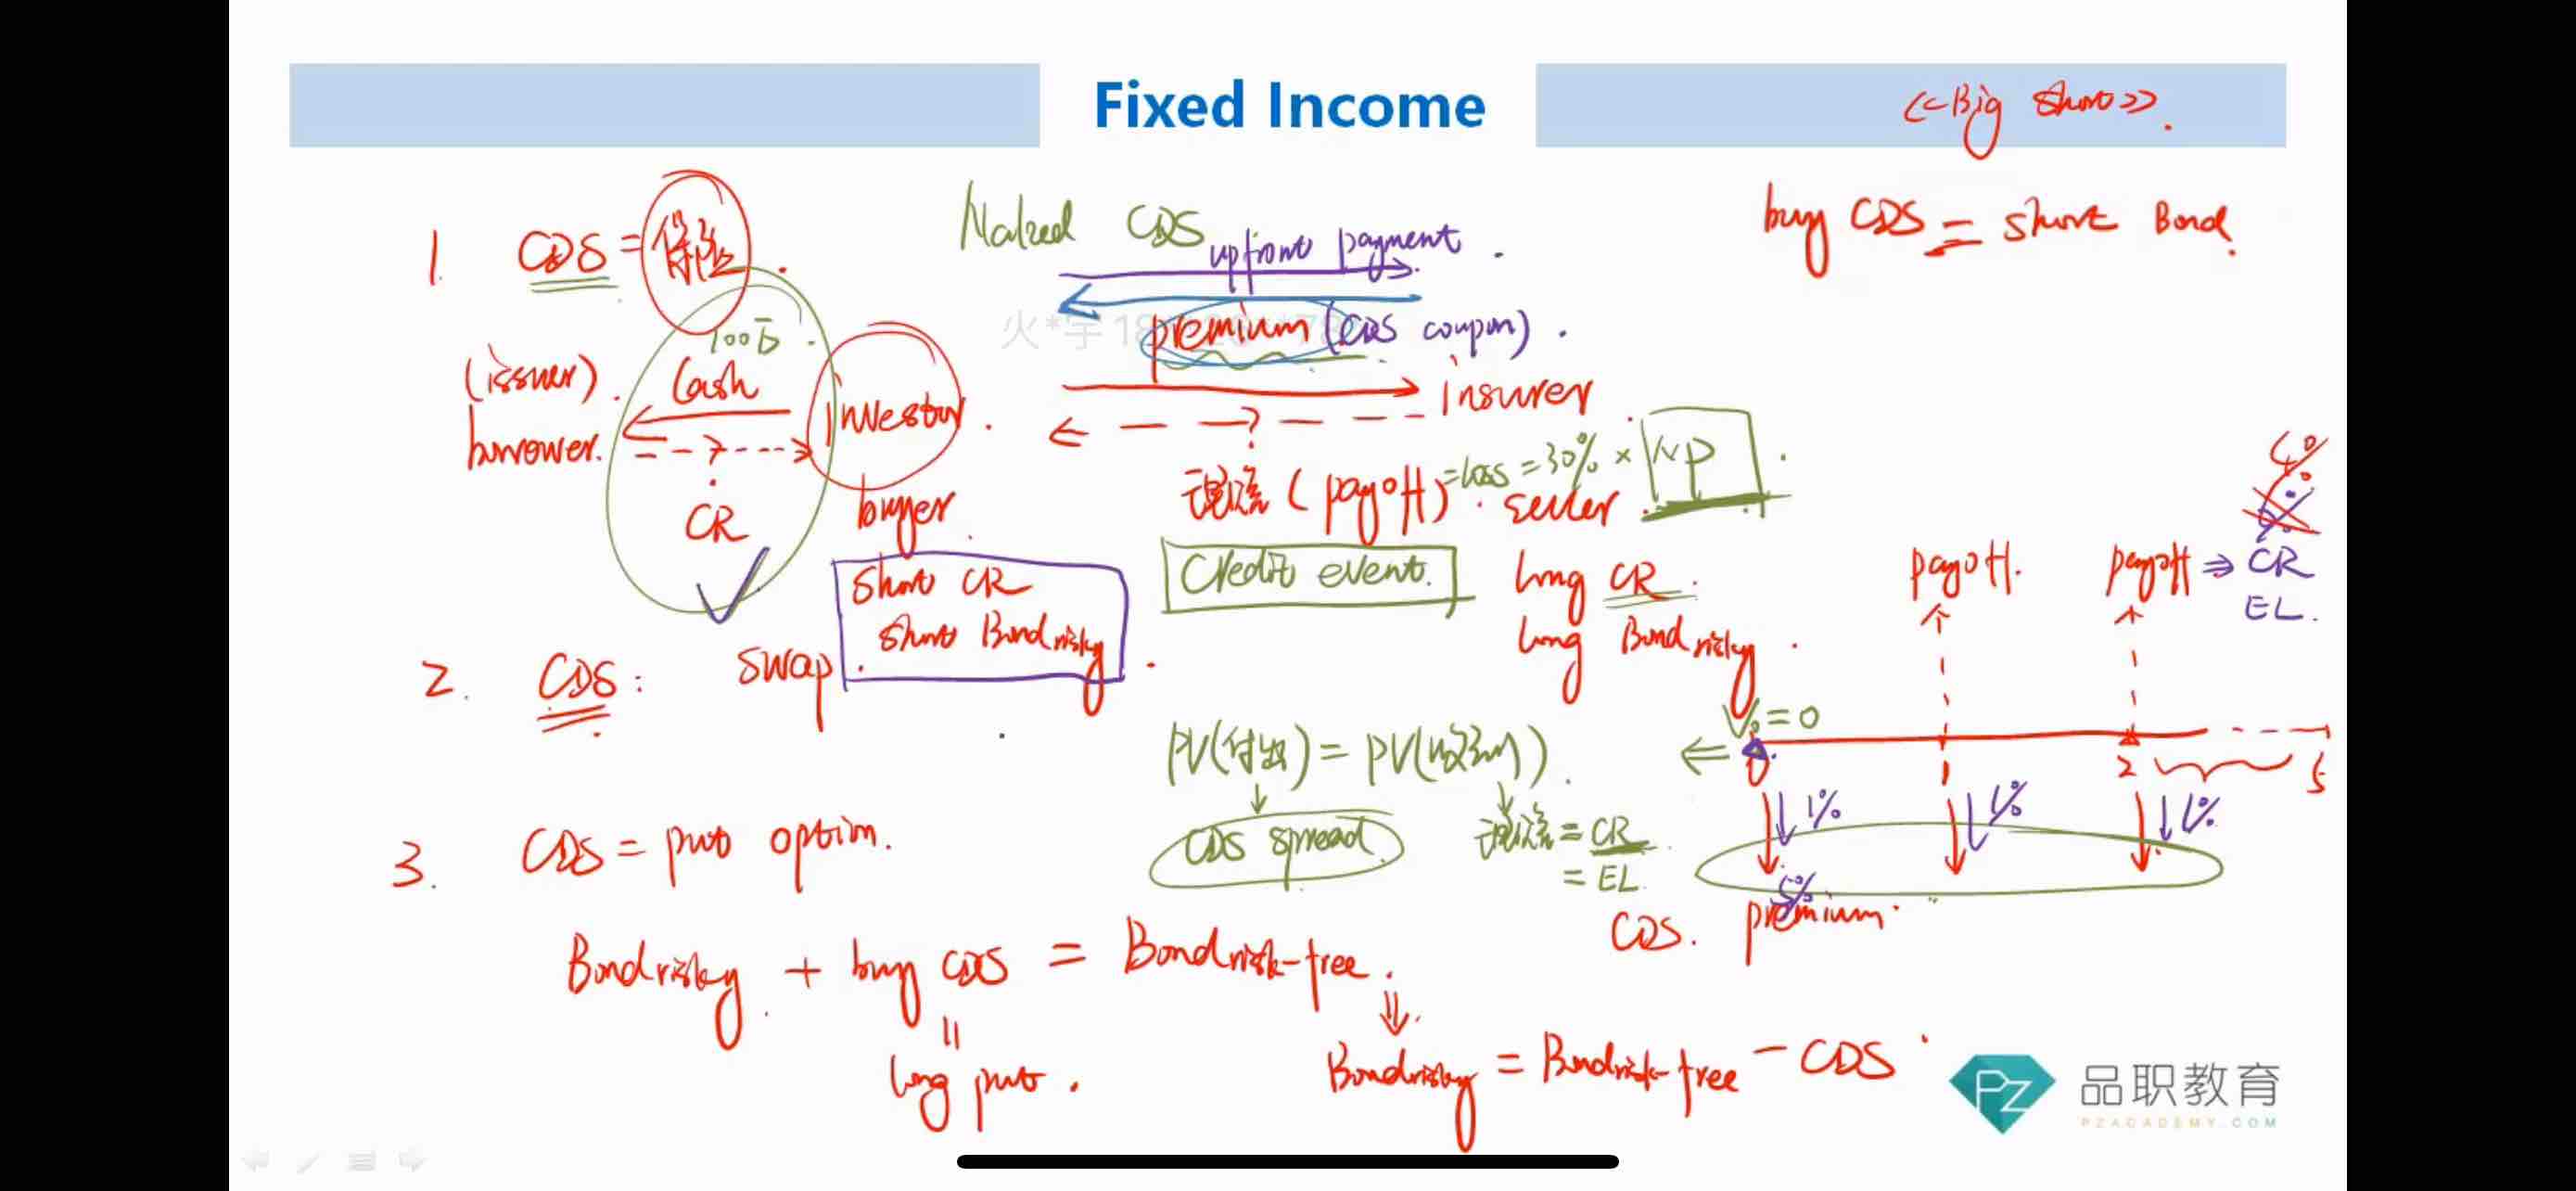 Fixed Income
<<Big Short>>.
1. CDS = 保险.
Naked CDS
upfront payment.
buy CDS = short Bond.
100百.
premium (CDS coupon).
(issuer).
Cash
borrower.
Investor.
insurer
?
CR
buyer.
(payoff) = loss = 30% × NP.
seller.
Credit event.
short CR
short Bond risky.
long CR.
long Bond risky.
payoff.
payoff ⇒ CR
EL.
2. CDS: swap.
PV(付出) = PV(收到).
⇐ V0 = 0
0 1 2 5
CDS spread.
= CR
= EL.
1% 1% 1%
5%
CDS. premium.
3. CDS = put option.
Bond risky + buy CDS = Bond risk-free.
long put.
Bond risky = Bond risk-free - CDS
PZ
品职教育
PZACADEMY.COM